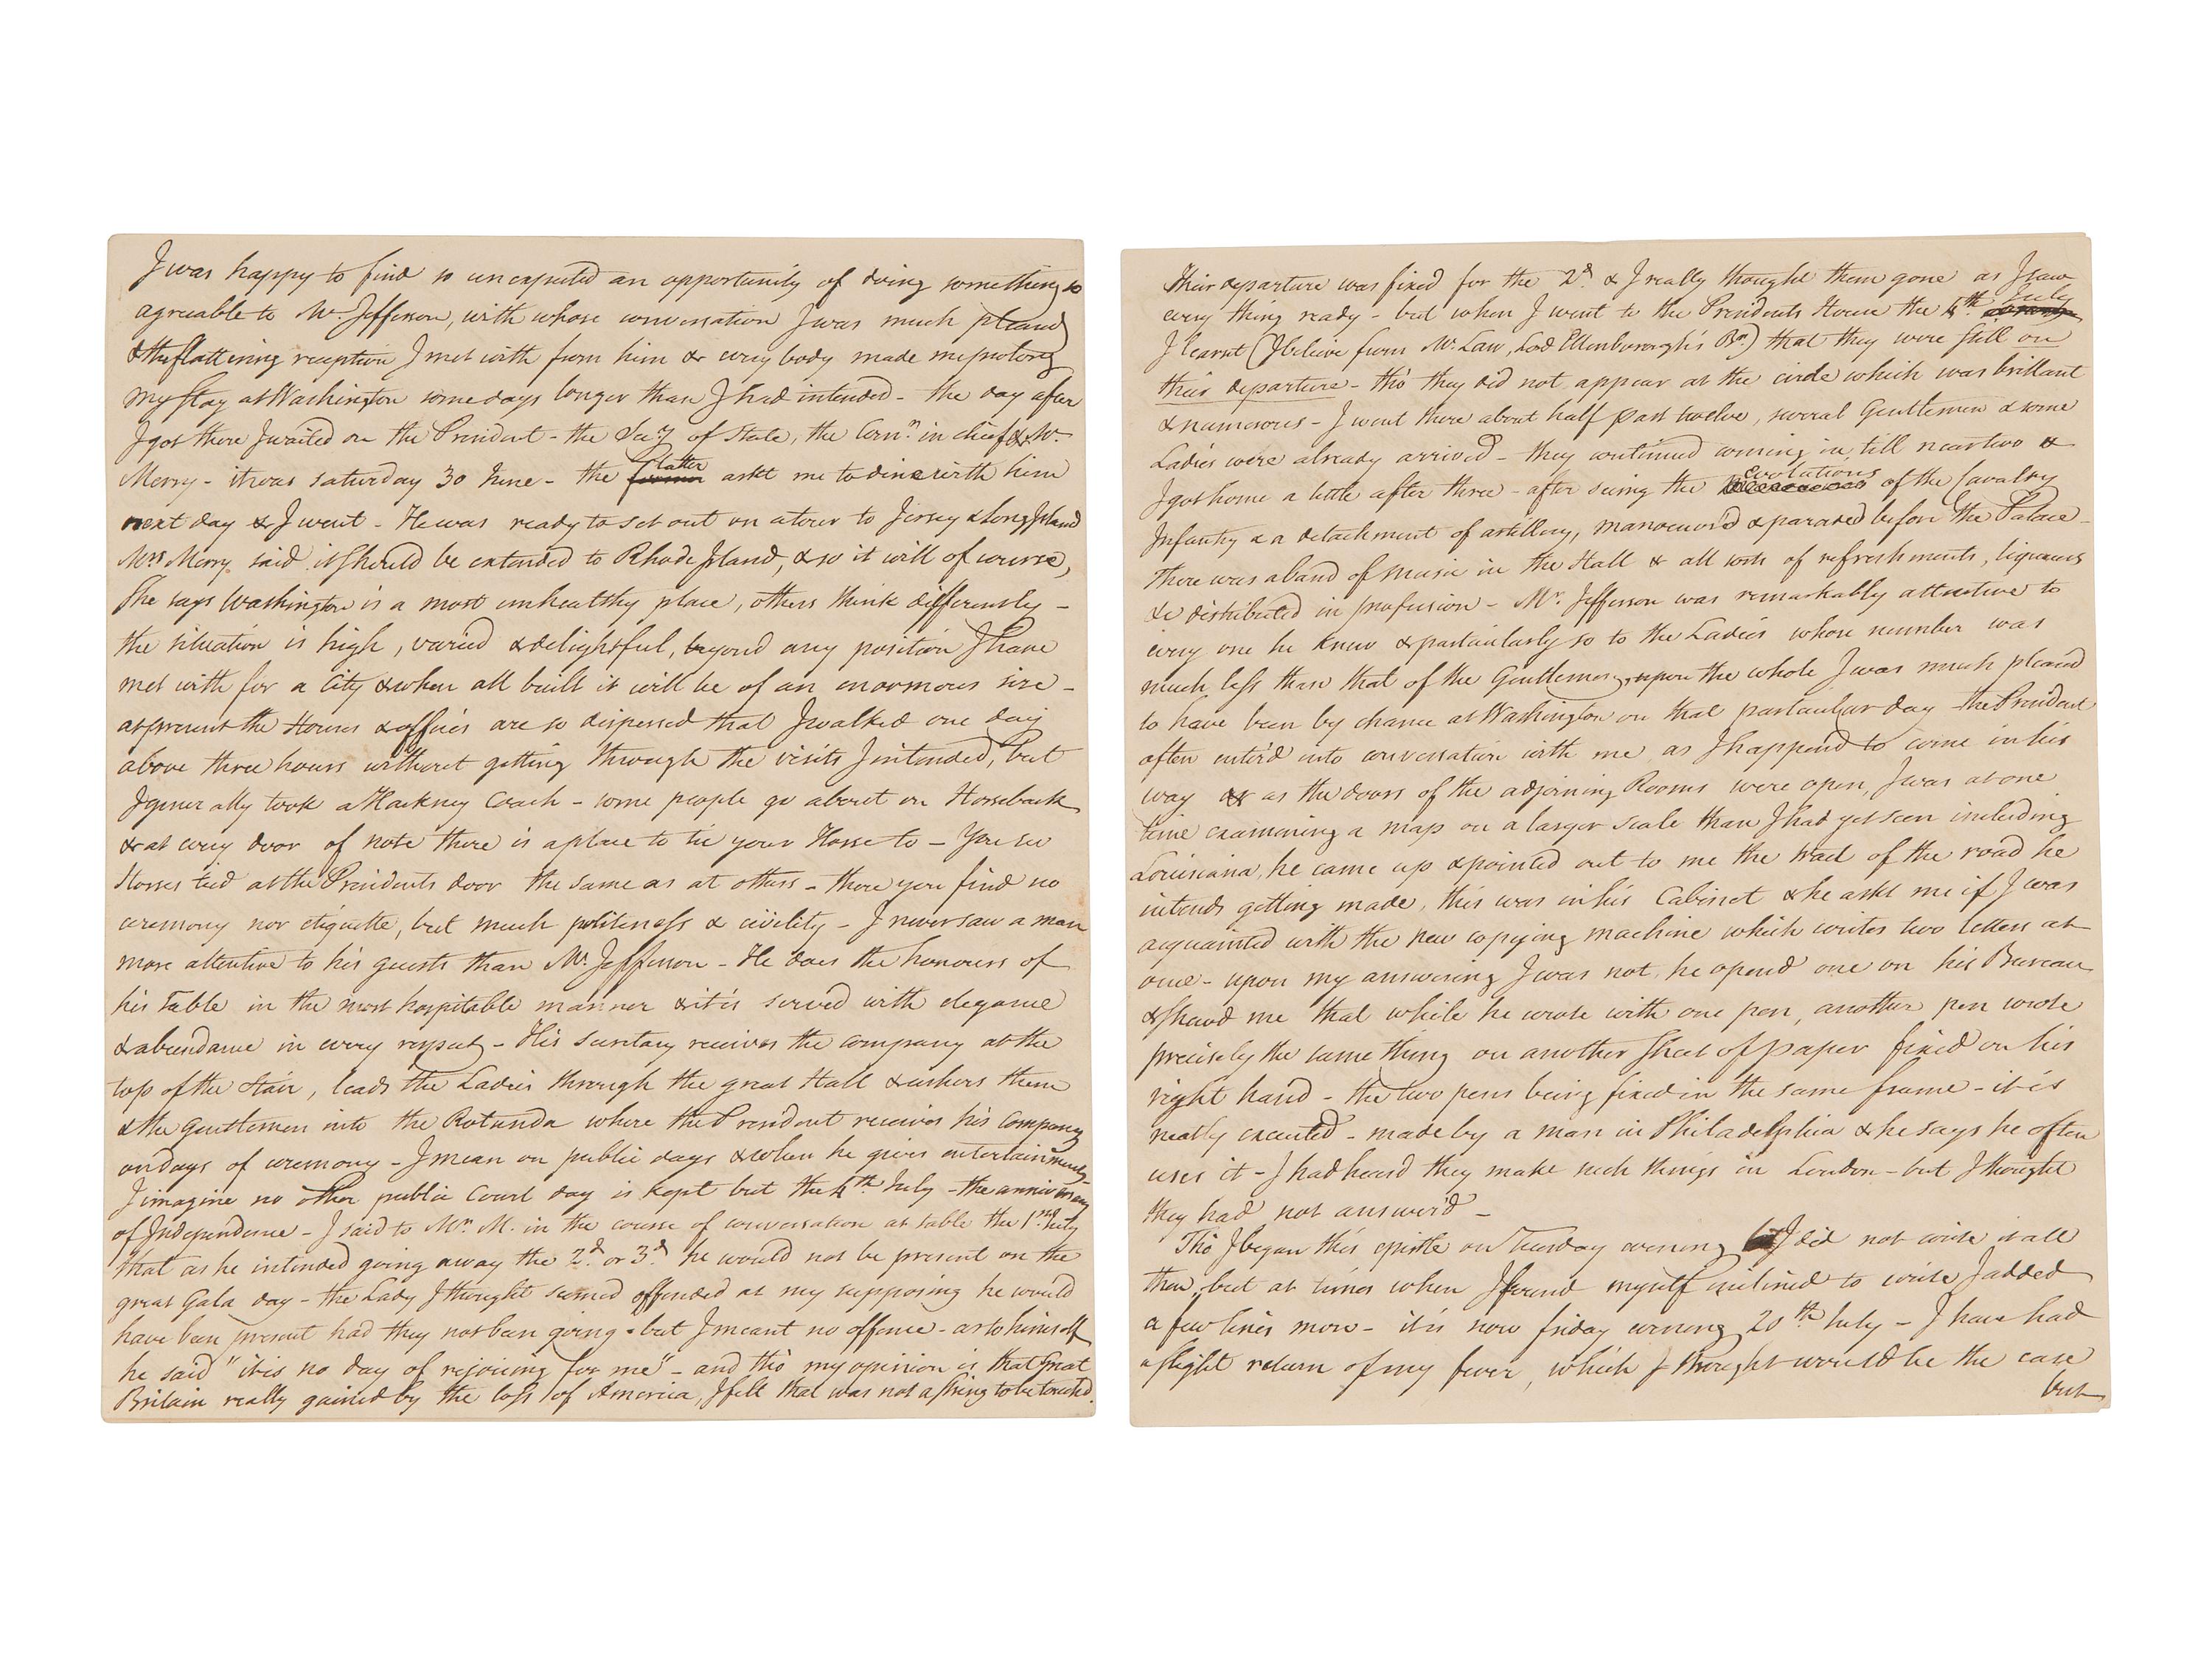 I was happy to find so unexpected an opportunity of doing something so
agreeable to Mr. Jefferson, with whose conversation I was much pleased
& the flattering reception I met with from him & every body made me prolong
my stay at Washington some days longer than I had intended - the day after
I got there I waited on the President - the Secy of State, the Comn. in chief & Mr.
Merry - it was Saturday 30 June - the former latter askt me to dine with him
next day & I went - He was ready to set out on a tour to Jersey & Long Island
Mrs Merry said it should be extended to Rhode Island, & so it will of course,
She says Washington is a most unhealthy place, others think differently -
the situation is high, varied & delightful, beyond any position I have
met with for a City & when all built it will be of an enormous size -
at present the Houses & offices are so dispersed that I walked one day
above three hours without getting through the visits I intended, but
I generally took a Hackney Coach - some people go about on Horseback
& at every door of note there is a place to tie your Horse to - You see
Horses tied at the Presidents door the same as at others - there you find no
ceremony nor etiquette, but much politeness & civility - I never saw a man
more attentive to his guests than Mr. Jefferson - He does the honours of
his Table in the most hospitable manner & it is served with elegance
& abundance in every respect - His Secretary receives the company at the
top of the Stair, leads the Ladies through the great Hall & ushers them
& the Gentlemen into the Rotunda where the President receives his company
on days of ceremony - I mean on public days & when he gives entertainments -
I imagine no other public Court day is kept but the 4th July - the anniversary
of Independence - I said to Mr. M. in the course of conversation at table the 1st July
that as he intended going away the 2d. or 3d. he would not be present on the
great Gala day - the Lady I thought seemed offended at my supposing he would
have been present had they not been going - but I meant no offence - as to himself
he said "it is no day of rejoicing for me" - and tho' my opinion is that Great
Britain really gained by the loss of America, I felt that was not a string to be touched.
Their departure was fixed for the 2d. & I really thought them gone as I saw
every thing ready - but when I went to the Presidents House the 4th July
I learnt (I believe from Mr. Law, Lord Ellenborough's Br.) that they were still on
their departure - tho' they did not appear at the circle which was brillant
& numerous - I went there about half past twelve, several Gentlemen & some
Ladies were already arrived - they continued coming in till near two &
I got home a little after three - after seeing the evolutions of the Cavalry
Infantry & a detachment of artillery, manoeuvr'd & paraded before the Palace -
there was a band of music in the Hall & all sorts of refreshments, liqueurs
&c distributed in profusion - Mr. Jefferson was remarkably attentive to
every one he knew & particularly so to the Ladies whose number was
much less than that of the Gentlemen, upon the whole I was much pleased
to have been by chance at Washington on that particular day - the President
often enter'd into conversation with me as I happend to come in his
way & as the doors of the adjoining Rooms were open, I was at one
time examining a map on a larger scale than I had yet seen including
Louisiana, he came up & pointed out to me the tract of the road he
intends getting made, this was in his Cabinet & he askt me if I was
acquainted with the new copying machine which writes two letters at
once - upon my answering I was not, he opend one on his Bureau
& shewd me that while he wrote with one pen, another pen wrote
precisely the same thing on another sheet of paper fixed on his
right hand - the two pens being fixed in the same frame - it is
neatly executed - made by a man in Philadelphia & he says he often
uses it - I had heard they make such things in London - but I thought
they had not answer'd -
Tho' I began this epistle on Tuesday evening I did not write it all
then, but at times when I found myself inclined to write I added
a few lines more - it is now friday evening 20th July - I have had
a slight return of my fever, which I thought would be the case
but